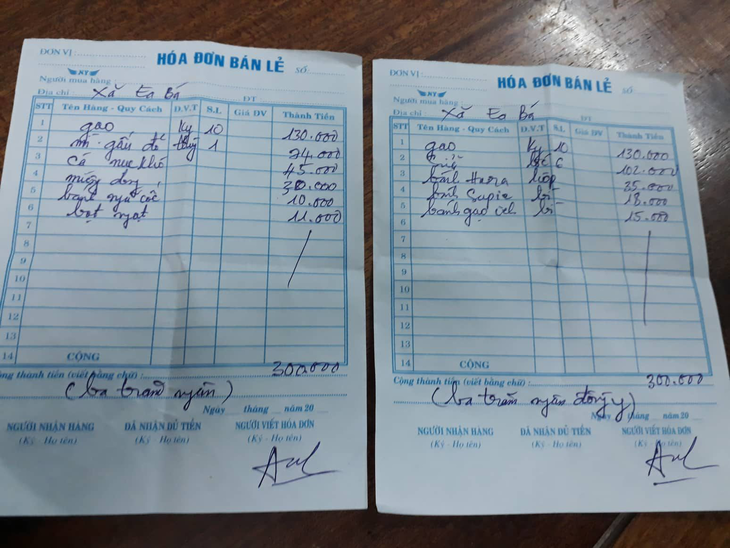 HÓA ĐƠN BÁN LẺ
ĐƠN VỊ: SỐ:
NT
Người mua hàng
Địa chỉ Xã Ea Bá ĐT
STT Tên Hàng - Quy Cách Đ.V.T S.L Giá ĐV Thành Tiền
1 gạo Kg 10 130.000
2 mì gấu đỏ thùng 1 74.000
3 Cá nục khô 45.000
4 miếng dong 30.000
5 bánh ngũ cốc 10.000
6 bột ngọt 11.000
7
8
9
10
11
12
13
14 CỘNG 300.000
Cộng thành tiền (viết bằng chữ)
(ba trăm ngàn)
Ngày tháng năm 20
NGƯỜI NHẬN HÀNG ĐÃ NHẬN ĐỦ TIỀN NGƯỜI VIẾT HÓA ĐƠN
(Ký - Họ tên) (Ký - Họ tên)
HÓA ĐƠN BÁN LẺ
ĐƠN VỊ: SỐ:
NT
Người mua hàng
Địa chỉ Xã Ea Bá ĐT
STT Tên Hàng - Quy Cách Đ.V.T S.L Giá ĐV Thành Tiền
1 gạo Kg 10 130.000
2 102.000
3 bánh Hura hộp 35.000
4 bánh 18.000
5 bánh gạo 15.000
6
7
8
9
10
11
12
13
14 CỘNG
Cộng thành tiền (viết bằng chữ): 300.000
(ba trăm ngàn đồng y)
Ngày tháng năm 20
NGƯỜI NHẬN HÀNG ĐÃ NHẬN ĐỦ TIỀN NGƯỜI VIẾT HÓA ĐƠN
(Ký - Họ tên) (Ký - Họ tên) (Ký - Họ tên)